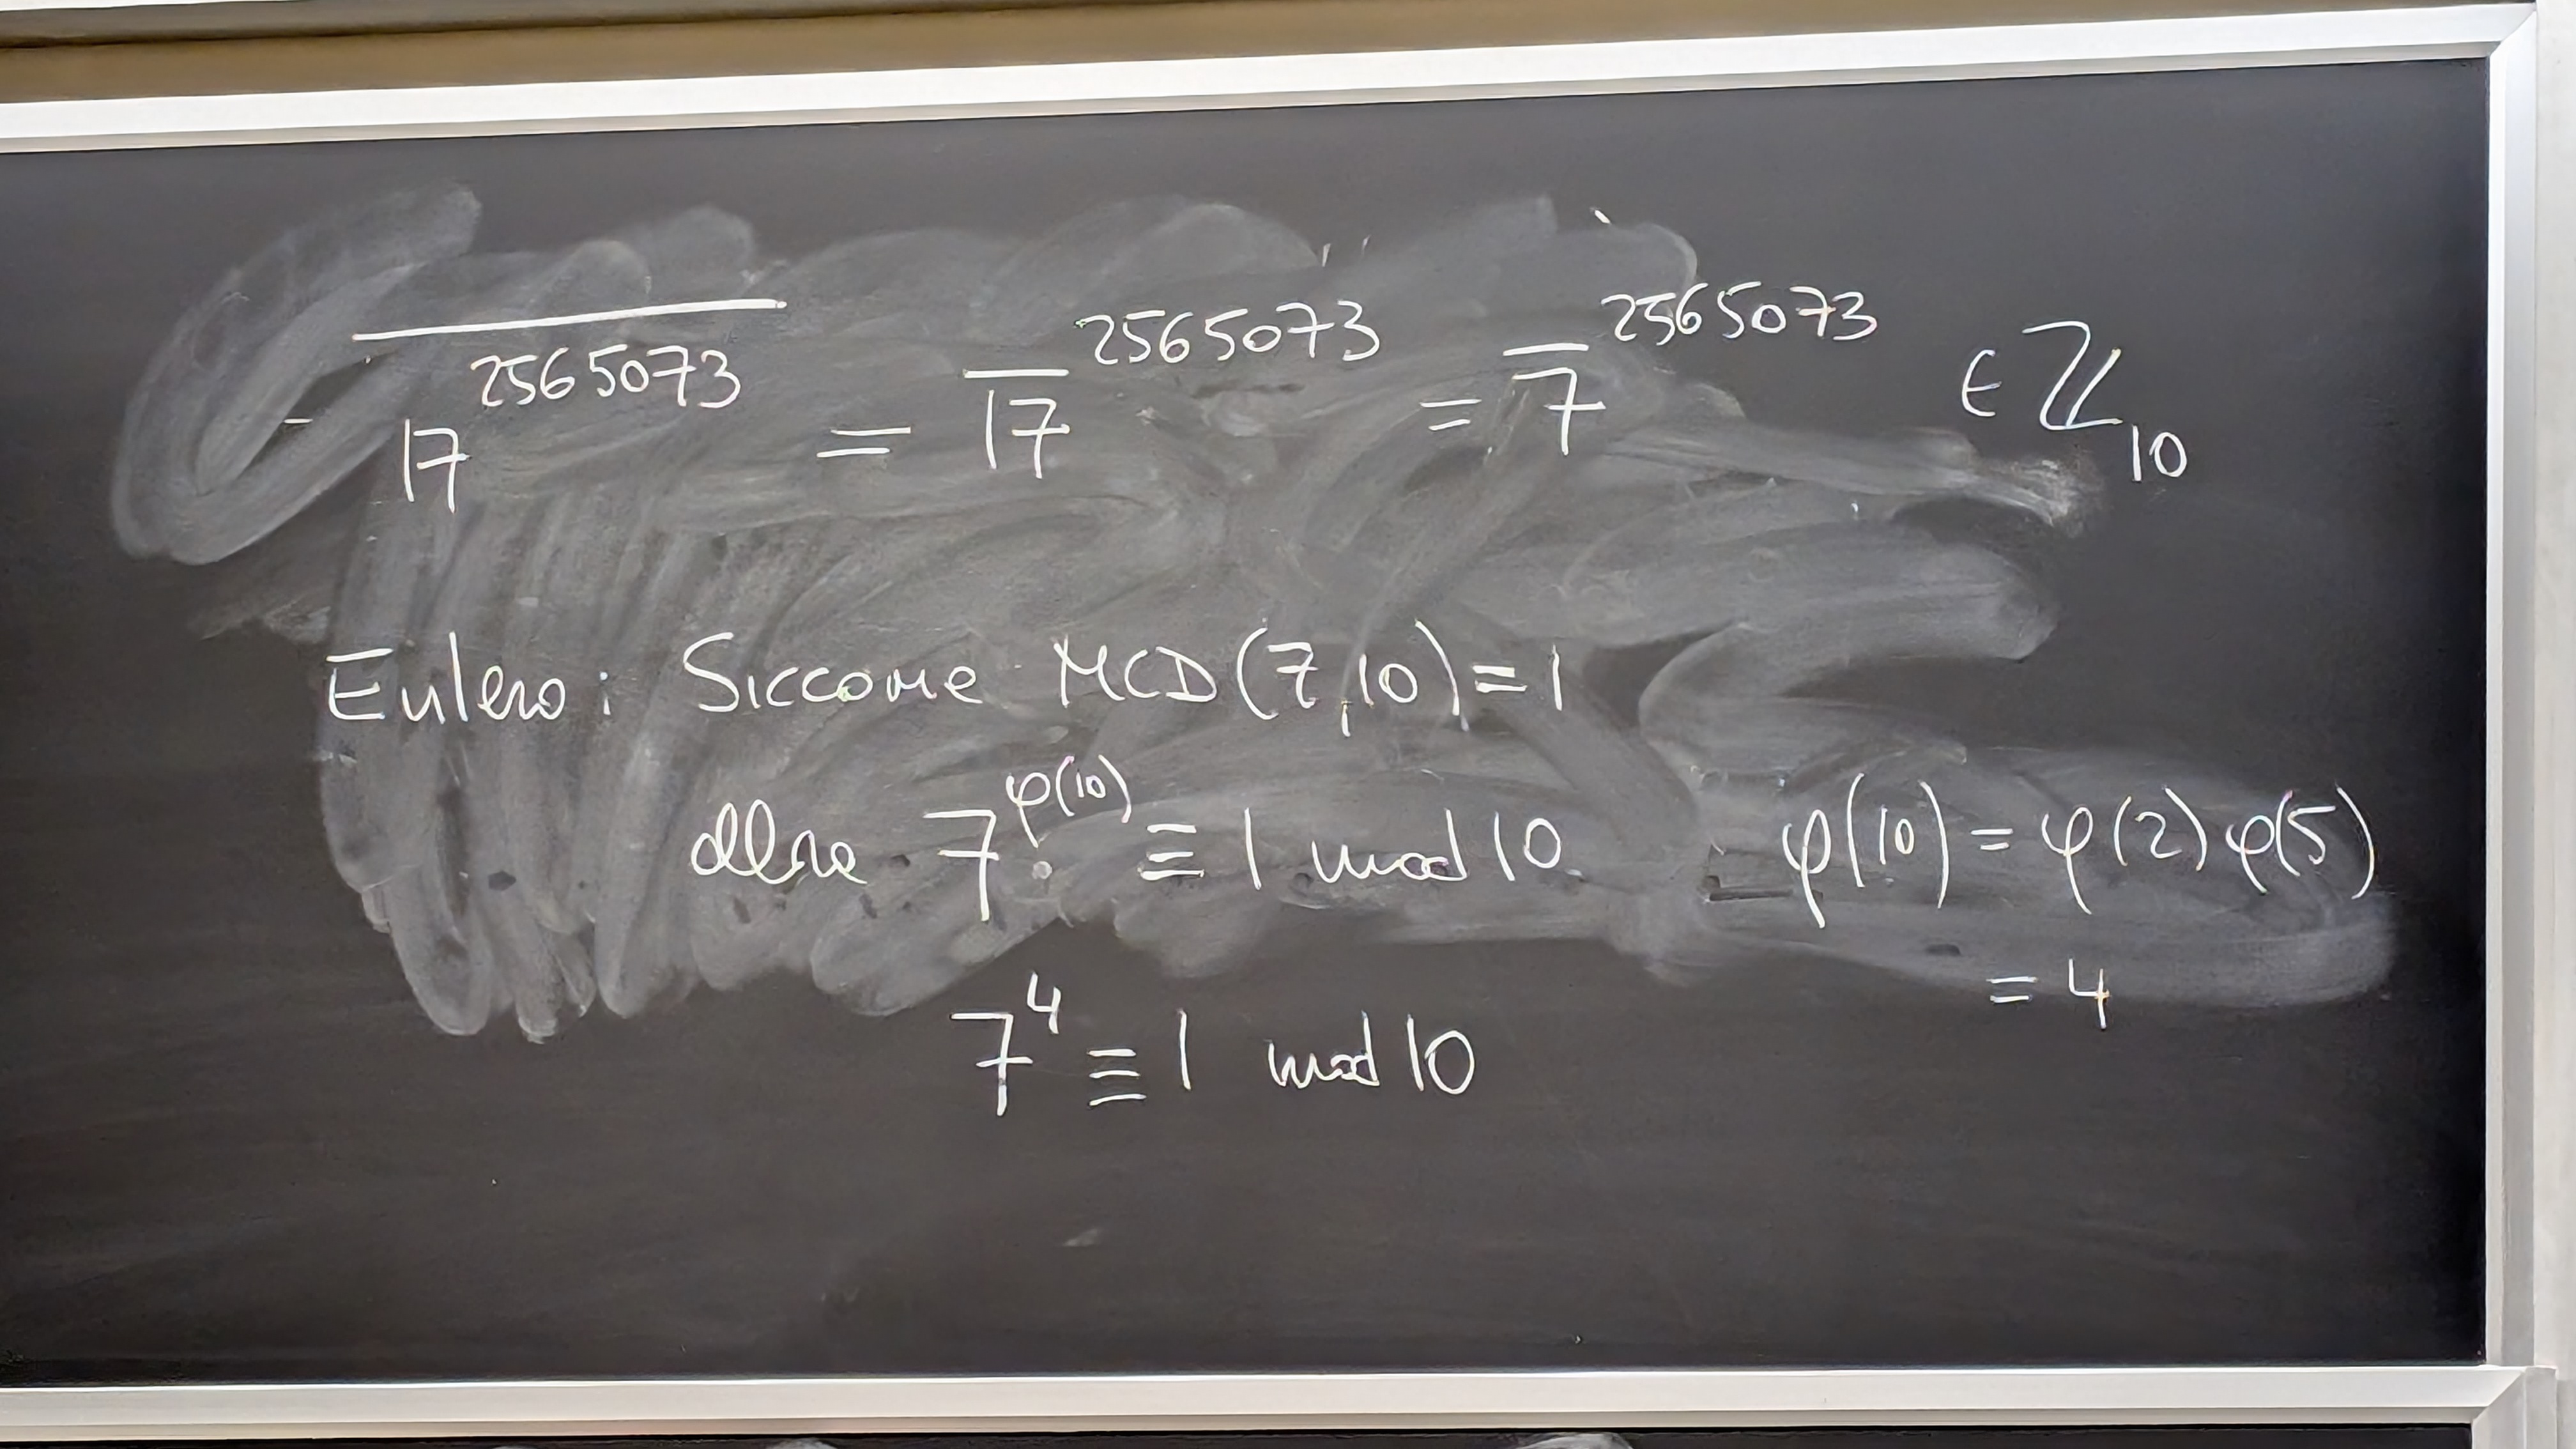 $\overline{17^{2565073}} = \overline{17}^{2565073} = \overline{7}^{2565073} \in \mathbb{Z}_{10}$
Eulero: Siccome MCD(7,10)=1
allora $7^{\varphi(10)} \equiv 1 \mod 10$ $\varphi(10) = \varphi(2)\varphi(5)$
$= 4$
$7^4 \equiv 1 \mod 10$